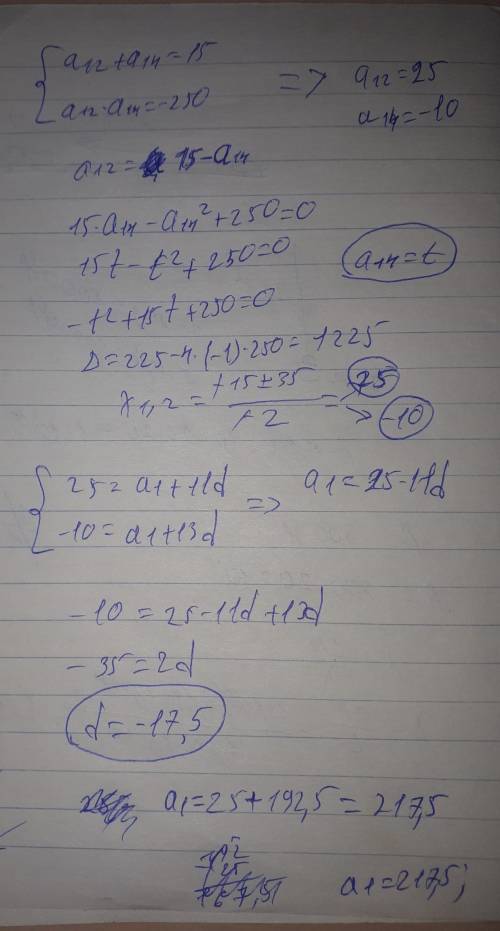 { a12 + a14 = 15 => a12 = 25
a12 · a14 = -250 a14 = -10
a12 = 15 - a14
15 · a14 - a14² + 250 = 0
15t - t² + 250 = 0 a14 = t
-t² + 15t + 250 = 0
D = 225 - 4 · (-1) · 250 = 1225
x1,2 = +15 ± 35 / +2 = 25
-10
{ 25 = a1 + 11d => a1 = 25 - 11d
-10 = a1 + 13d
-10 = 25 - 11d + 13d
-35 = 2d
d = -17,5
a1 = 25 + 192,5 = 217,5
a1 = 217,5;